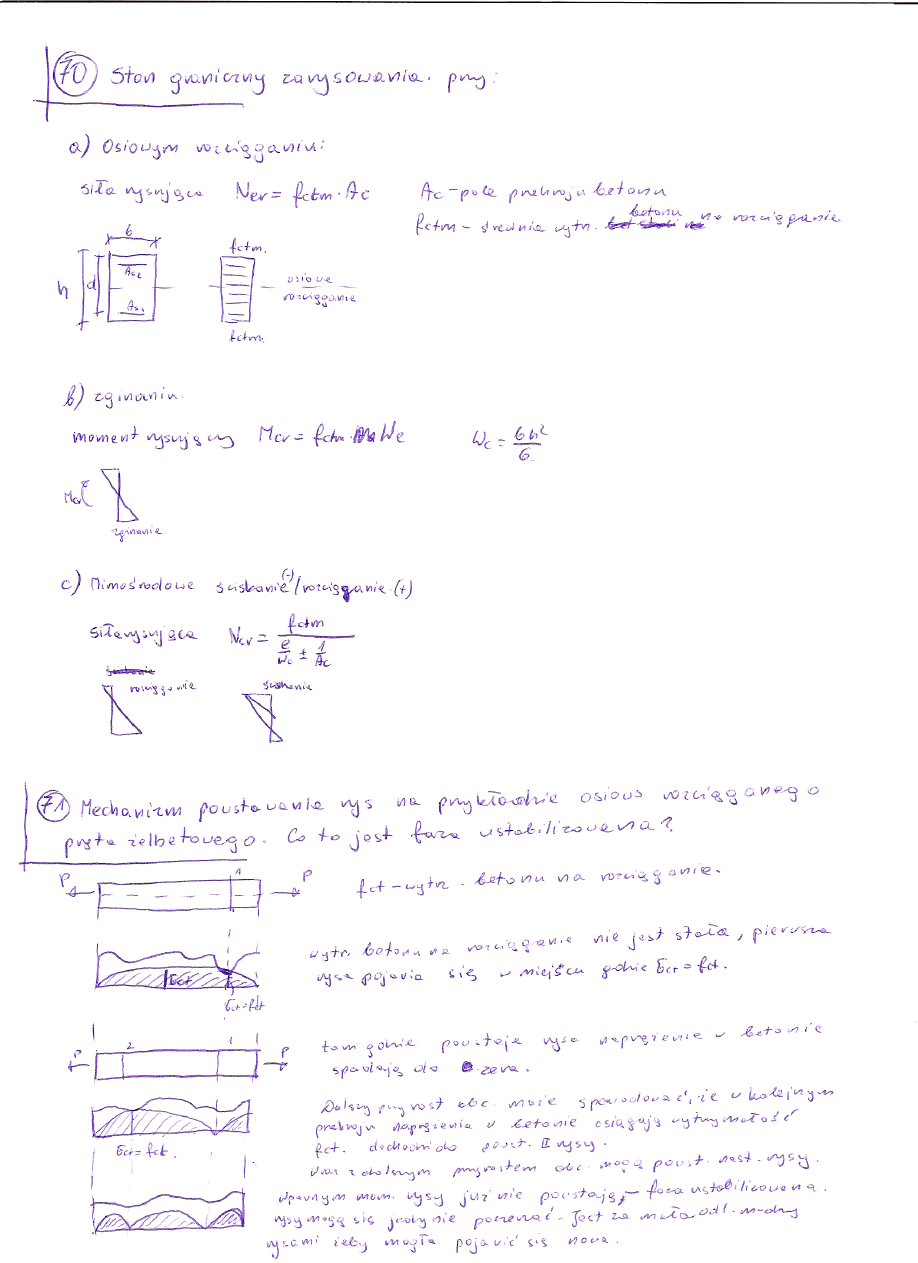 70 Stan graniczny zarysowania. przy:
a) Osiowym rozciąganiu:
siła rysująca Ncr = fctm · Ac Ac - pole przekroju betonu
fctm - średnia wytr. betonu na rozciąganie
b
h d As2 As1
fctm.
osiowe
rozciąganie
fctm.
b) zginaniu.
moment rysujący Mcr = fctm · Wc Wc = bh²/6
Mcr
zginanie
c) Mimośrodowe ściskanie (-) / rozciąganie (+)
siła rysująca Ncr = fctm / (e/Wc ± 1/Ac)
rozciąganie ściskanie
71 Mechanizm powstawania rys na przykładzie osiowo rozciąganego
pręta żelbetowego. Co to jest faza ustabilizowana?
P 1 P
fct - wytrz. betonu na rozciąganie.
wytr. betonu na rozciąganie nie jest stała, pierwsza
rysa pojawia się w miejscu gdzie σct = fct.
σct
σct = fct
P 2 1 P
tam gdzie powstaje rysa naprężenie w betonie
spadają do zera.
Dalszy przyrost obc. może spowodować, że w kolejnym
przekroju naprężenia w betonie osiągają wytrzymałość
fct. dochodzi do powst. II rysy.
σct = fct.
Wraz z dalszym przyrostem obc. mogą powst. nast. rysy.
W pewnym mom. rysy już nie powstają - faza ustabilizowana.
rysy mogą się jedynie poszerzać. Jest za mała odl. m-dzy
rysami żeby mogła pojawić się nowa.